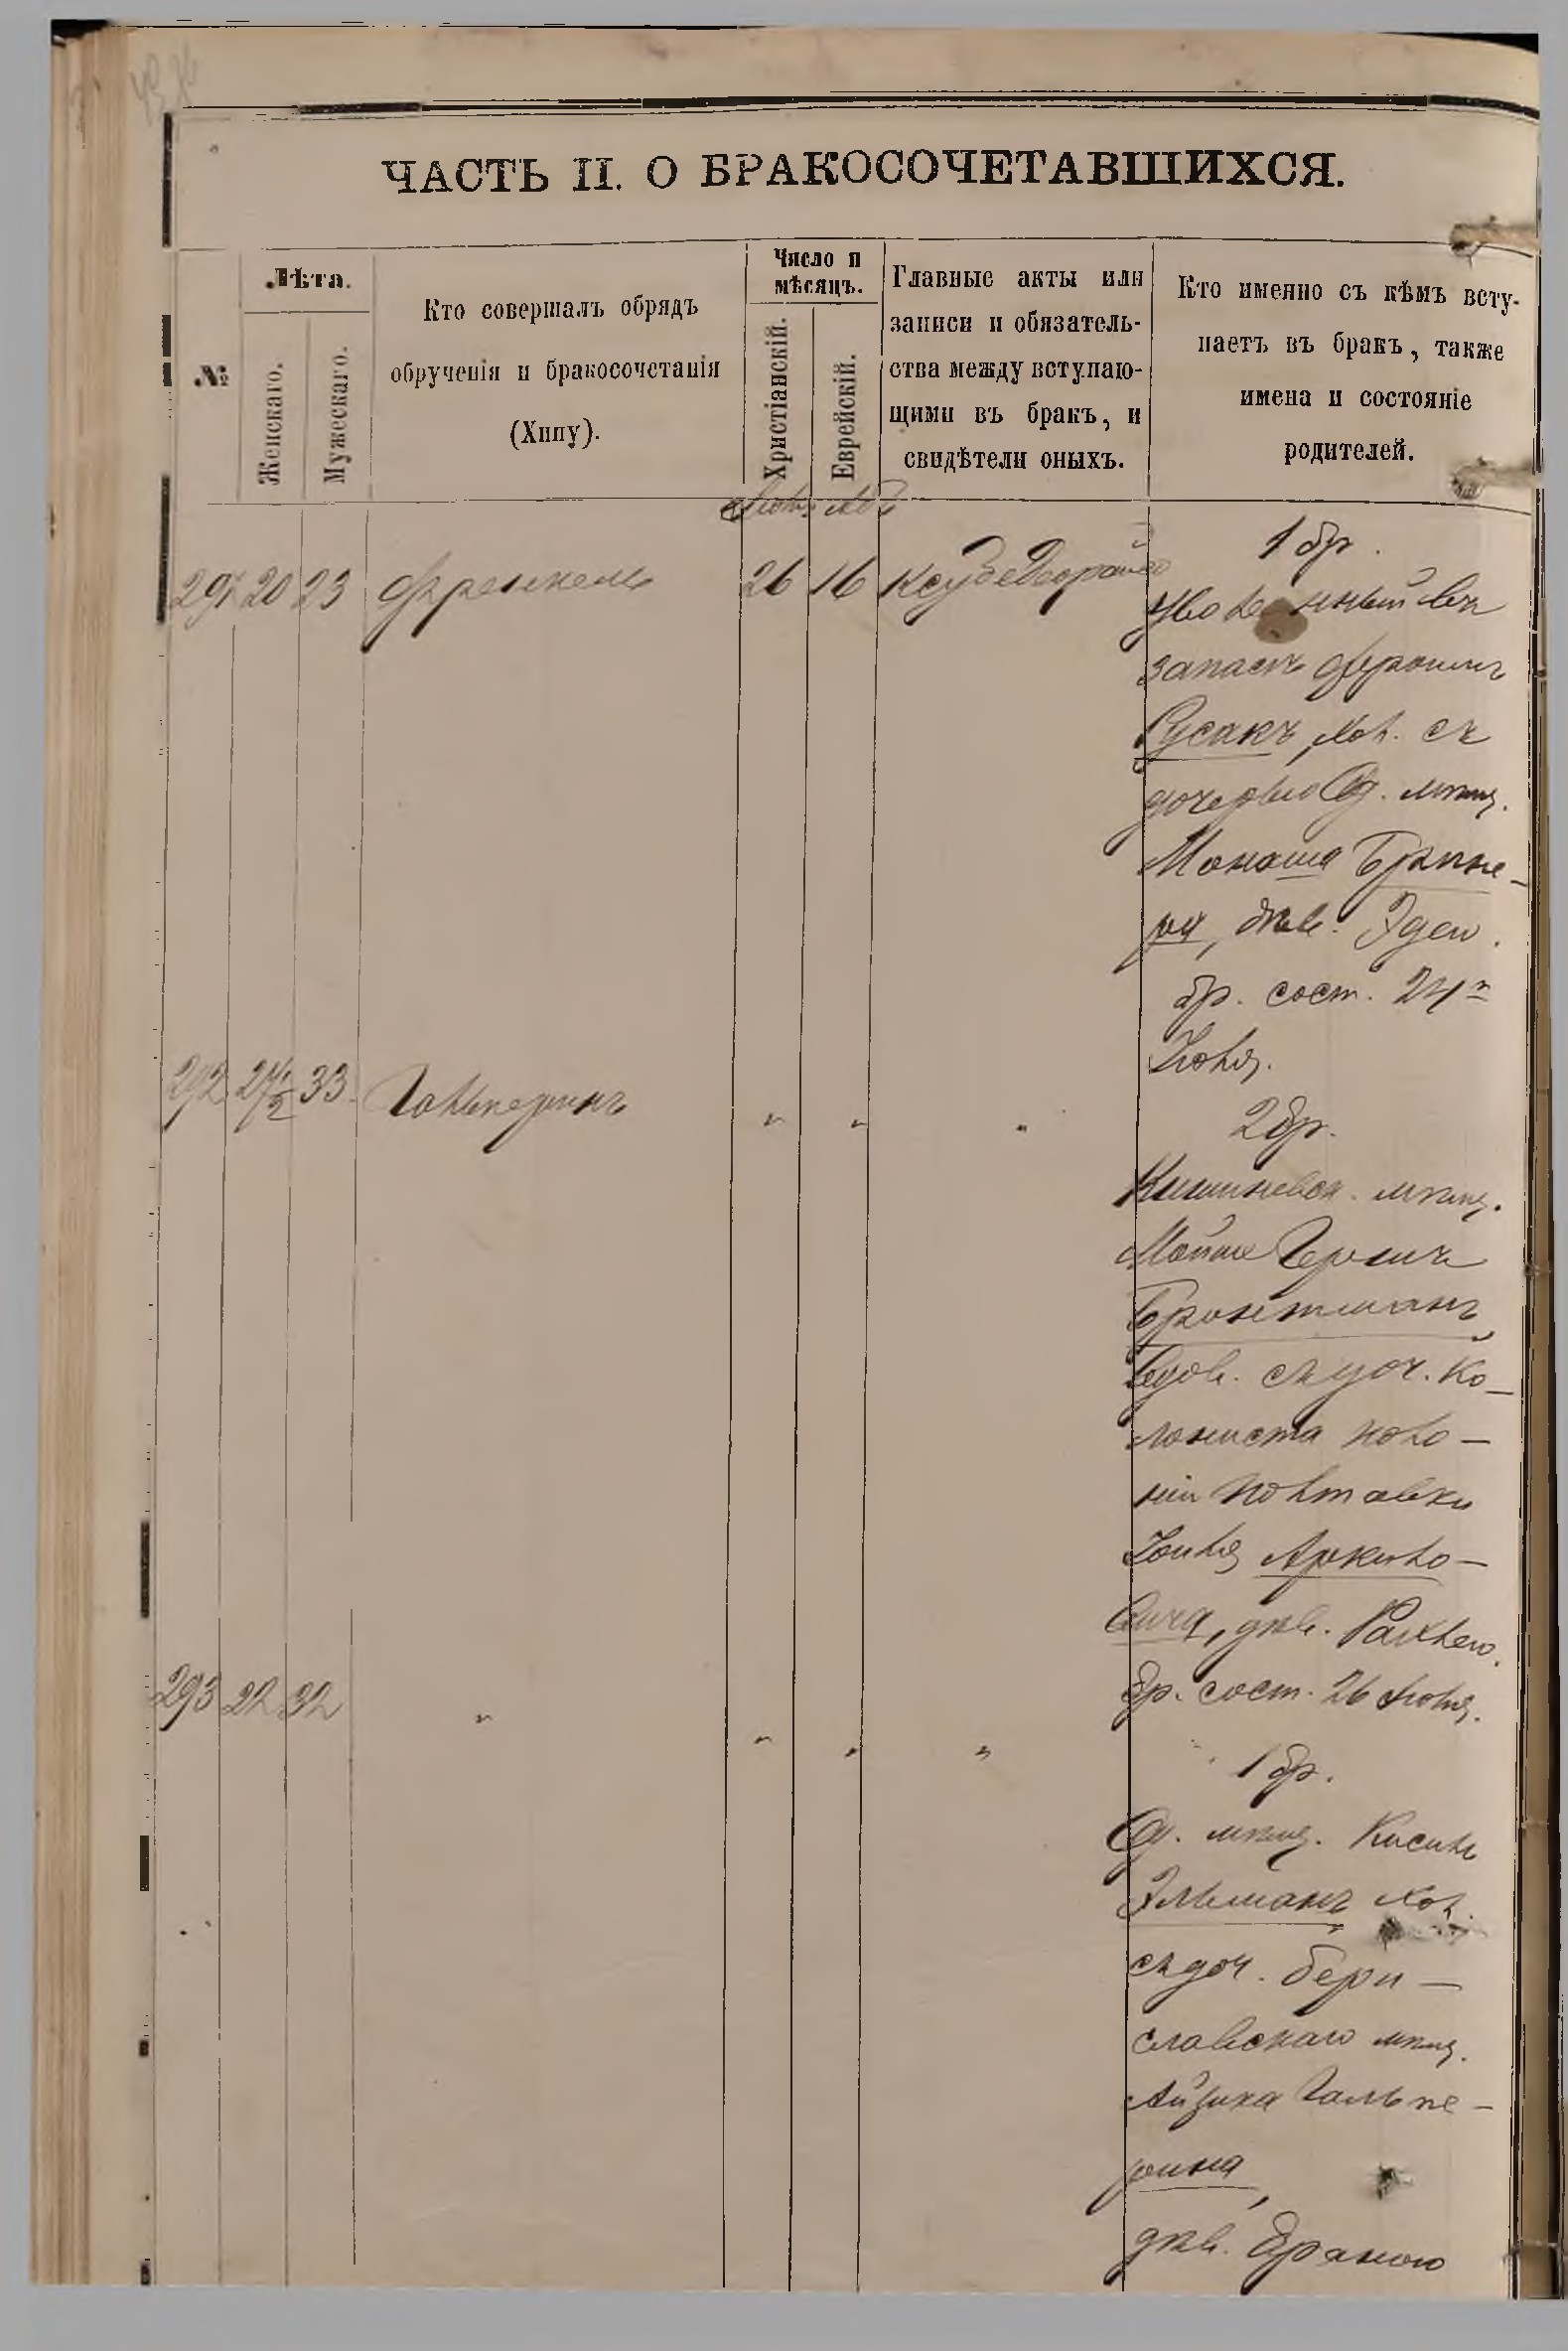 ЧАСТЬ II. О БРАКОСОЧЕТАВШИХСЯ.
№
Лѣта.
Женскаго.
Мужескаго.
Кто совершалъ обрядъ
обрученія и бракосочетанія
(Хипу).
Число и
мѣсяцъ.
Христіанскій.
Еврейскій.
Главные акты или
записи и обязатель-
ства между вступаю-
щими въ бракъ, и
свидѣтели оныхъ.
Кто именно съ кѣмъ всту-
паетъ въ бракъ, также
имена и состояніе
родителей.
291 20 23 Френкель 26 16
1 бр.
Уволенный въ
запасъ Фроимъ
Русакъ, хол. съ
дочерью Од. мѣщ.
Монаша
дѣв. Эдею.
бр. сост. 24
Іюля.
292 24 1/2 33 Гальперинъ " " "
2 бр.
Кишиневск. мѣщ.
Мойше Гершъ
Бронтманъ,
вдов. съ доч. ко-
лониста коло-
ніи Полтавки
Іоиля Арконо-
вича, дѣв. Рахлею.
Бр. сост. 26 Іюля.
293 22 32 " " " "
1 бр.
Од. мѣщ. Кисиль
Эльманъ хол.
съ доч. Бери-
славскаго мѣщ.
Айзика Гальпе-
рина,
дѣв. Браною